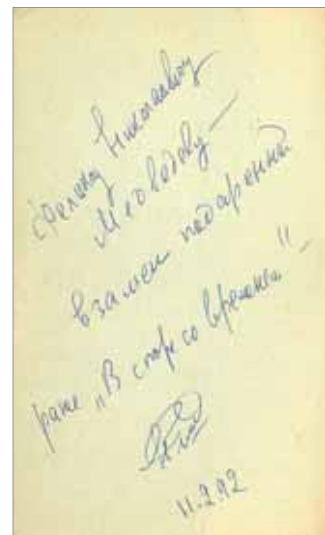 Феликсу Николаевичу
Медведеву —
взамен подаренной
ранее „В споре со временем" —
11.2.92